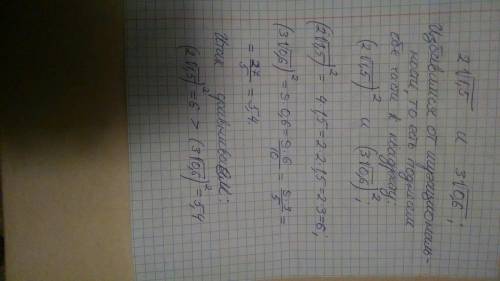 2√1,5 и 3√0,6;
Избавимся от иррациональ-
ности, то есть поднесем
обе части к квадрату
(2√1,5)² и (3√0,6)²;
(2√1,5)² = 4·1,5=2·2·1,5=2·3=6;
(3√0,6)² = 9·0,6 = 9·6/10 = 9·3/5 =
= 27/5 = 5,4.
Итак, сравниваем:
(2√1,5)²=6 > (3√0,6)²=5,4